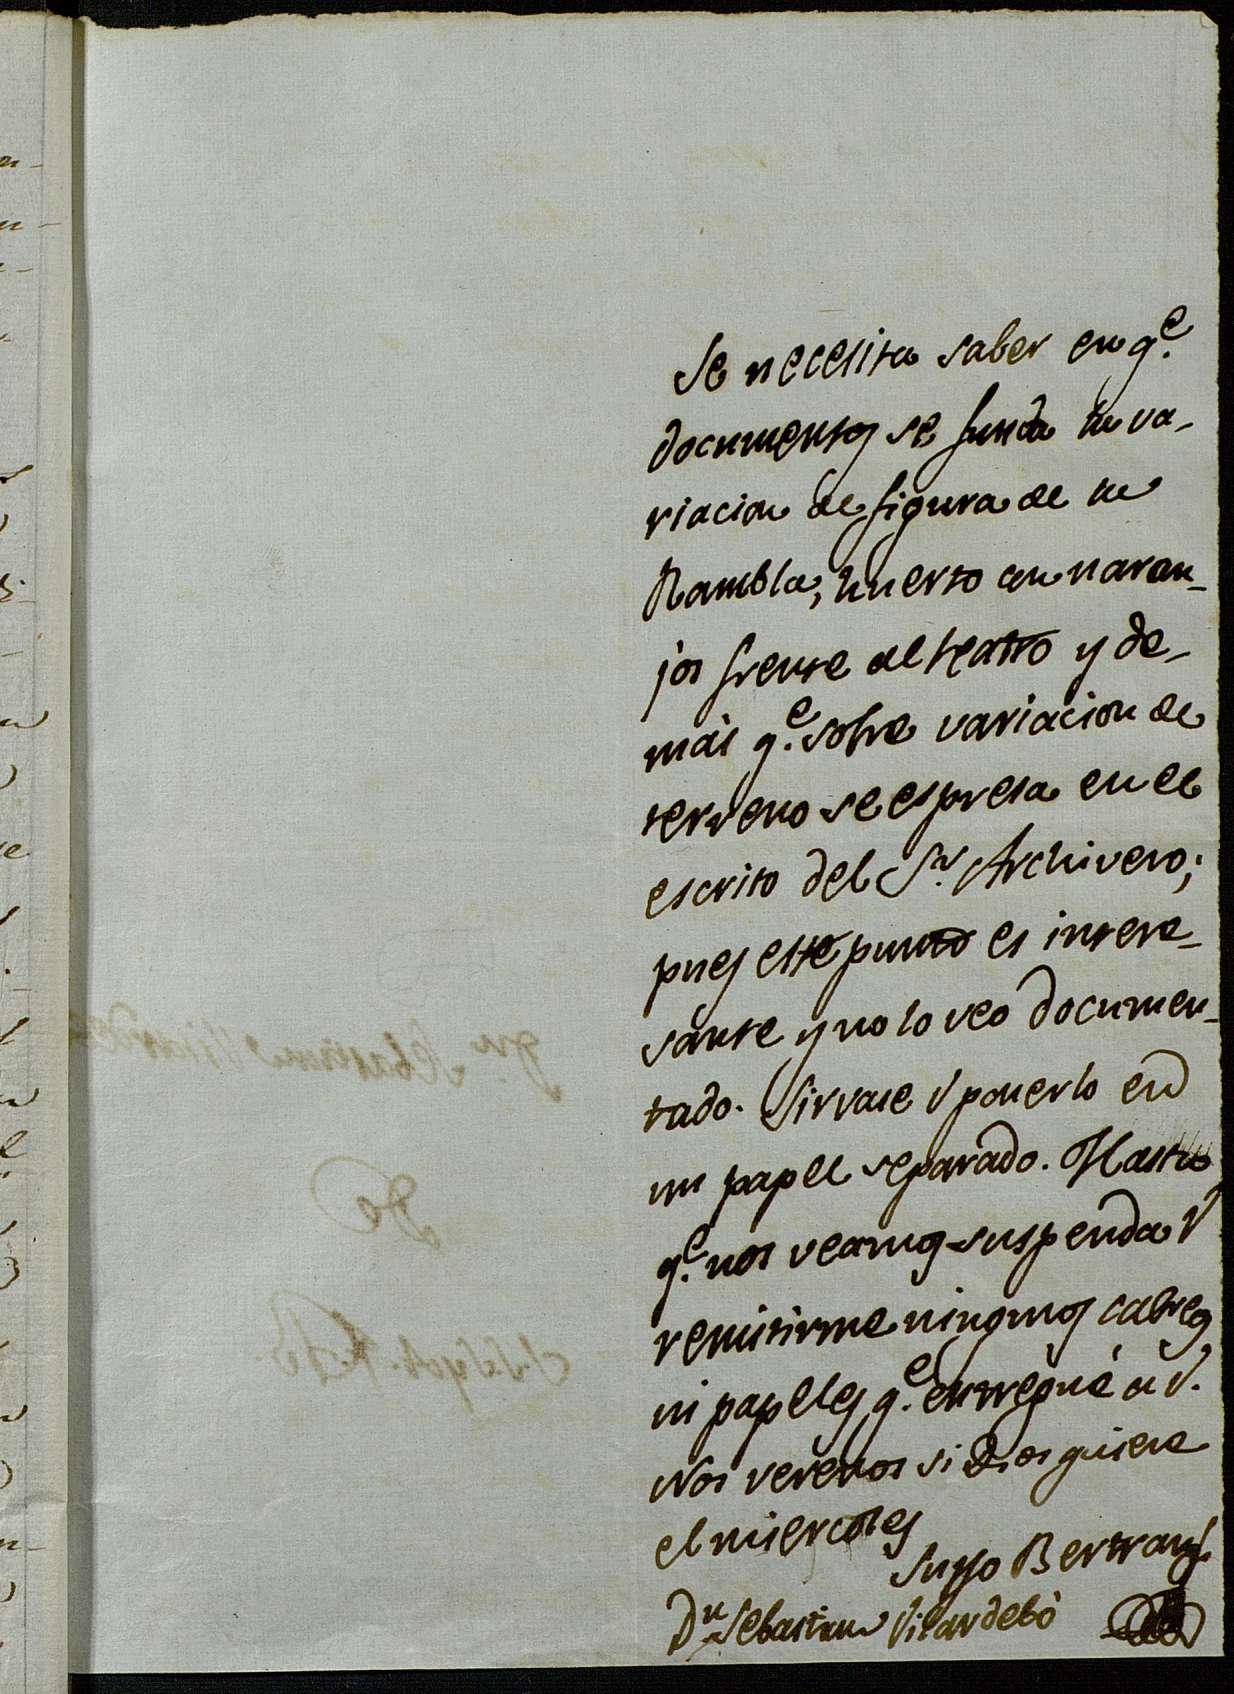 Se necesita saber en q.e
documentos se funda la va-
riacion de figura de la
Rambla, huerto con naran-
jos frente al teatro y de-
más q.e sobre variacion de
terreno se espresa en el
escrito del S.r Archivero;
pues este punto es intere-
sante y no lo veo documen-
tado. Sirvase V ponerlo en
un papel separado. Hasta
q.e nos veamos suspenda V
remitirme ningunos cabreos
ni papeles q.e entregué a V.
Nos veremos si Dios quiere
el miercoles
Suyo Bertran
D.n Sebastian Vilardebó